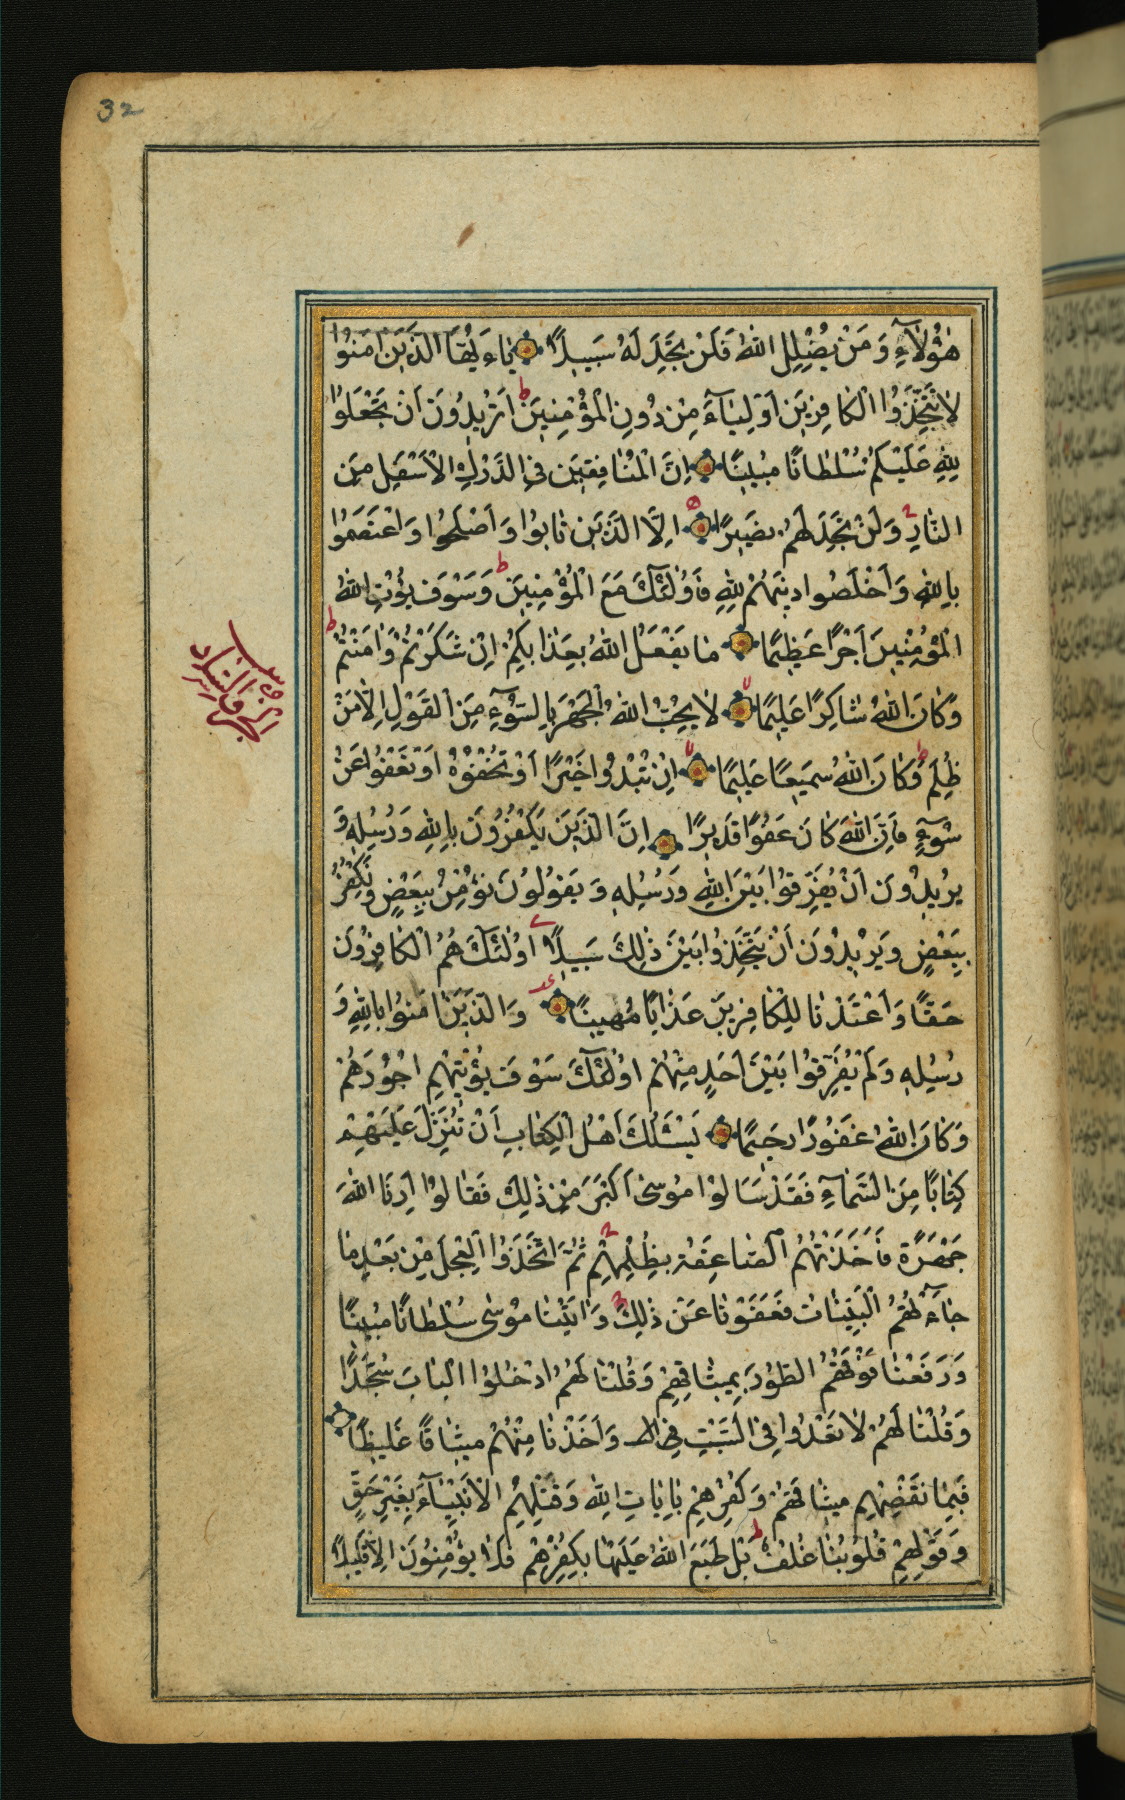 32
هٰؤُلَآءِ وَمَنْ يُضْلِلِ اللّٰهُ فَلَنْ تَجِدَ لَهُ سَبِيلًا يَاءَيُّهَا الَّذِينَ اٰمَنُوا
لَا تَتَّخِذُوا الْكَافِرِينَ اَوْلِيَآءَ مِنْ دُونِ الْمُؤْمِنِينَ ط اَتُرِيدُونَ اَنْ تَجْعَلُوا
لِلّٰهِ عَلَيْكُمْ سُلْطَانًا مُبِينًا اِنَّ الْمُنَافِقِينَ فِى الدَّرْكِ الْاَسْفَلِ مِنَ
النَّارِ وَلَنْ تَجِدَ لَهُمْ نَصِيرًا اِلَّا الَّذِينَ تَابُوا وَاَصْلَحُوا وَاعْتَصَمُوا
بِاللّٰهِ وَاَخْلَصُوا دِينَهُمْ لِلّٰهِ فَاُولٰئِكَ مَعَ الْمُؤْمِنِينَ ط وَسَوْفَ يُؤْتِ اللّٰهُ
الْمُؤْمِنِينَ اَجْرًا عَظِيمًا مَا يَفْعَلُ اللّٰهُ بِعَذَابِكُمْ اِنْ شَكَرْتُمْ وَاٰمَنْتُمْ ط
وَكَانَ اللّٰهُ شَاكِرًا عَلِيمًا لَا يُحِبُّ اللّٰهُ الْجَهْرَ بِالسُّوٓءِ مِنَ الْقَوْلِ اِلَّا مَنْ
ظُلِمَ ط وَكَانَ اللّٰهُ سَمِيعًا عَلِيمًا اِنْ تُبْدُوا خَيْرًا اَوْ تُخْفُوهُ اَوْ تَعْفُوا عَنْ
سُوٓءٍ فَاِنَّ اللّٰهَ كَانَ عَفُوًّا قَدِيرًا اِنَّ الَّذِينَ يَكْفُرُونَ بِاللّٰهِ وَرُسُلِهِ وَ
يُرِيدُونَ اَنْ يُفَرِّقُوا بَيْنَ اللّٰهِ وَرُسُلِهِ وَيَقُولُونَ نُؤْمِنُ بِبَعْضٍ وَنَكْفُرُ
بِبَعْضٍ وَيُرِيدُونَ اَنْ يَتَّخِذُوا بَيْنَ ذٰلِكَ سَبِيلًا اُولٰئِكَ هُمُ الْكَافِرُونَ
حَقًّا وَاَعْتَدْنَا لِلْكَافِرِينَ عَذَابًا مُهِينًا وَالَّذِينَ اٰمَنُوا بِاللّٰهِ وَ
رُسُلِهِ وَلَمْ يُفَرِّقُوا بَيْنَ اَحَدٍ مِنْهُمْ اُولٰئِكَ سَوْفَ يُؤْتِيهِمْ اُجُورَهُمْ
وَكَانَ اللّٰهُ غَفُورًا رَحِيمًا يَسْئَلُكَ اَهْلُ الْكِتَابِ اَنْ تُنَزِّلَ عَلَيْهِمْ
كِتَابًا مِنَ السَّمَآءِ فَقَدْ سَاَلُوا مُوسٰى اَكْبَرَ مِنْ ذٰلِكَ فَقَالُوا اَرِنَا اللّٰهَ
جَهْرَةً فَاَخَذَتْهُمُ الصَّاعِقَةُ بِظُلْمِهِمْ ثُمَّ اتَّخَذُوا الْعِجْلَ مِنْ بَعْدِ مَا
جَآءَتْهُمُ الْبَيِّنَاتُ فَعَفَوْنَا عَنْ ذٰلِكَ وَاٰتَيْنَا مُوسٰى سُلْطَانًا مُبِينًا
وَرَفَعْنَا فَوْقَهُمُ الطُّورَ بِمِيثَاقِهِمْ وَقُلْنَا لَهُمُ ادْخُلُوا الْبَابَ سُجَّدًا
وَقُلْنَا لَهُمْ لَا تَعْدُوا فِى السَّبْتِ وَاَخَذْنَا مِنْهُمْ مِيثَاقًا غَلِيظًا
فَبِمَا نَقْضِهِمْ مِيثَاقَهُمْ وَكُفْرِهِمْ بِاٰيَاتِ اللّٰهِ وَقَتْلِهِمُ الْاَنْبِيَآءَ بِغَيْرِ حَقٍّ
وَقَوْلِهِمْ قُلُوبُنَا غُلْفٌ ط بَلْ طَبَعَ اللّٰهُ عَلَيْهَا بِكُفْرِهِمْ فَلَا يُؤْمِنُونَ اِلَّا قَلِيلًا